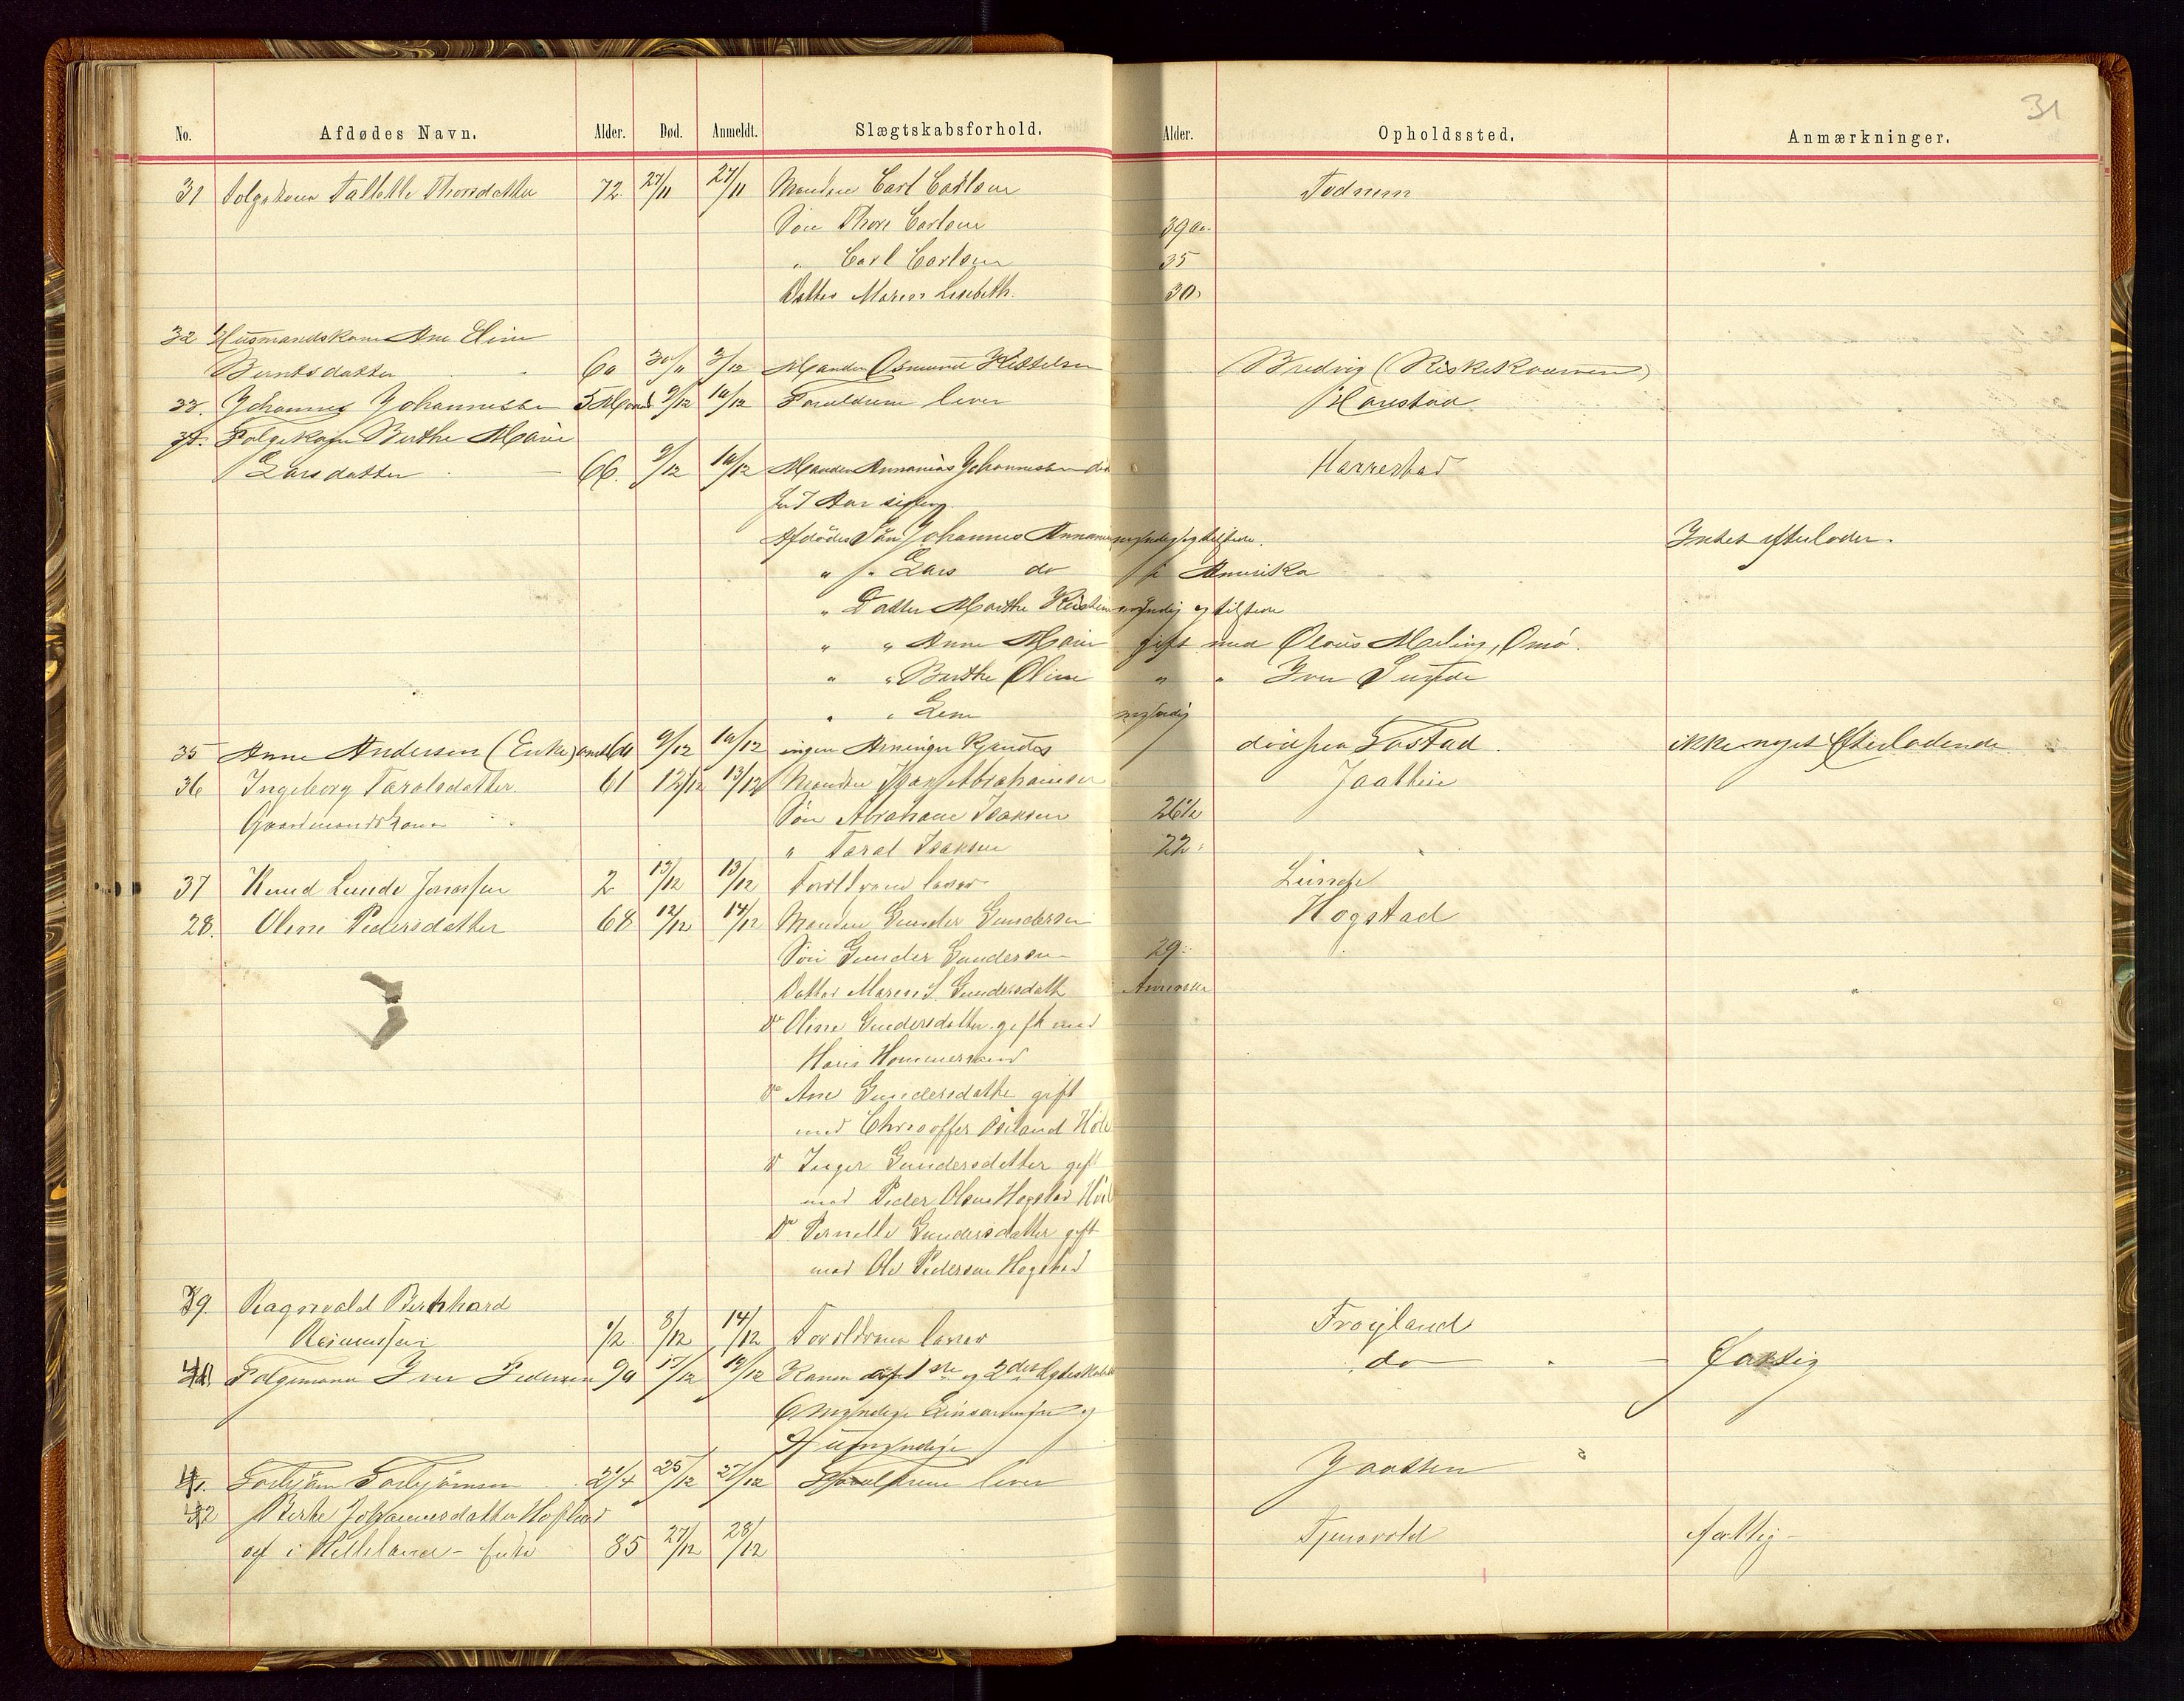 31
No. Afdødes Navn. Alder. Død. Anmeldt. Slægtskabsforhold. Alder. Opholdssted. Anmærkninger.
31 Folgekone Thorsdatter 72 27/11 27/11 Manden Carl Carlsen Todnem
Søn Thore Carlsen 39 aa.
" Carl Carlsen 35
Datter Maren Lisebeth. 30
32 Husmandskone Ane Eline
Berntsdatter 60 30/11 3/12 Manden Osmund Kittelsen Bredvig
33. Johannes Johannessen 5 Maned 9/12 10/12 Forældrene lever Harestad
34. Folgekone Berthe Marie
Larsdatter 66. 9/12 10/12 Manden Annanias Johannessen død Harrestad
for 7 Aar siden
Afdødes Søn Johannes Annanias myndig og tilstede. Intet efterlader.
" " Lars do i Amerika
" Datter Marthe Kristine myndig og tilstede
" " Anne Marie gift med Olaus Meling, Omø.
" " Berthe Oline " " Iver Sunde
" " Lene myndig
35 Anne Andersen (Enke) omtr 60 9/12 10/12 ingen Arvinger kjendes død paa Tastad ikke noget Efterladende
36 Ingeborg Taralsdatter. 61 12/12 13/12 Manden Isak Abrahamsen Jaatten
Gaardmandskone Søn Abraham Isaksen 26 1/2
" Taral Isaksen 22
37 Knud Lunde Jonassen 2 13/12 13/12 Forældrene lever Lunde
28. Oline Pedersdatter 68 12/12 14/12 Manden Gunder Gundersen Hogstad
Søn Gunder Gundersen 29
Datter Maren S. Gundersdatt Amerika
Do Oline Gundersdatter gift med
Hans Hommersand
Do Ane Gundersdatter gift
med Christoffer Høle
Do Inger Gundersdatter gift
med Peder Olsen Hogstad Høl
Do Pernille Gundersdatter gift
med Ole Pedersen Hogstad
39. Ragnvald Bernhard
Rasmussen 1/2 8/12 14/12 Forældrene lever Frøyland
40. Folgemand Iver Pedersen 90 17/12 19/12 Konen af 1ste og 2det Ægteskab do Fattig
6 myndige Livsarvinger og
4 umyndige
41. Torbjørn Torbjørnsen 2 1/4 25/12 27/12 Forældrene lever Jaatten
42 Berte Johannesdatter
af i Helleland - Enke 85 27/12 28/12 Tjensvold fattig -